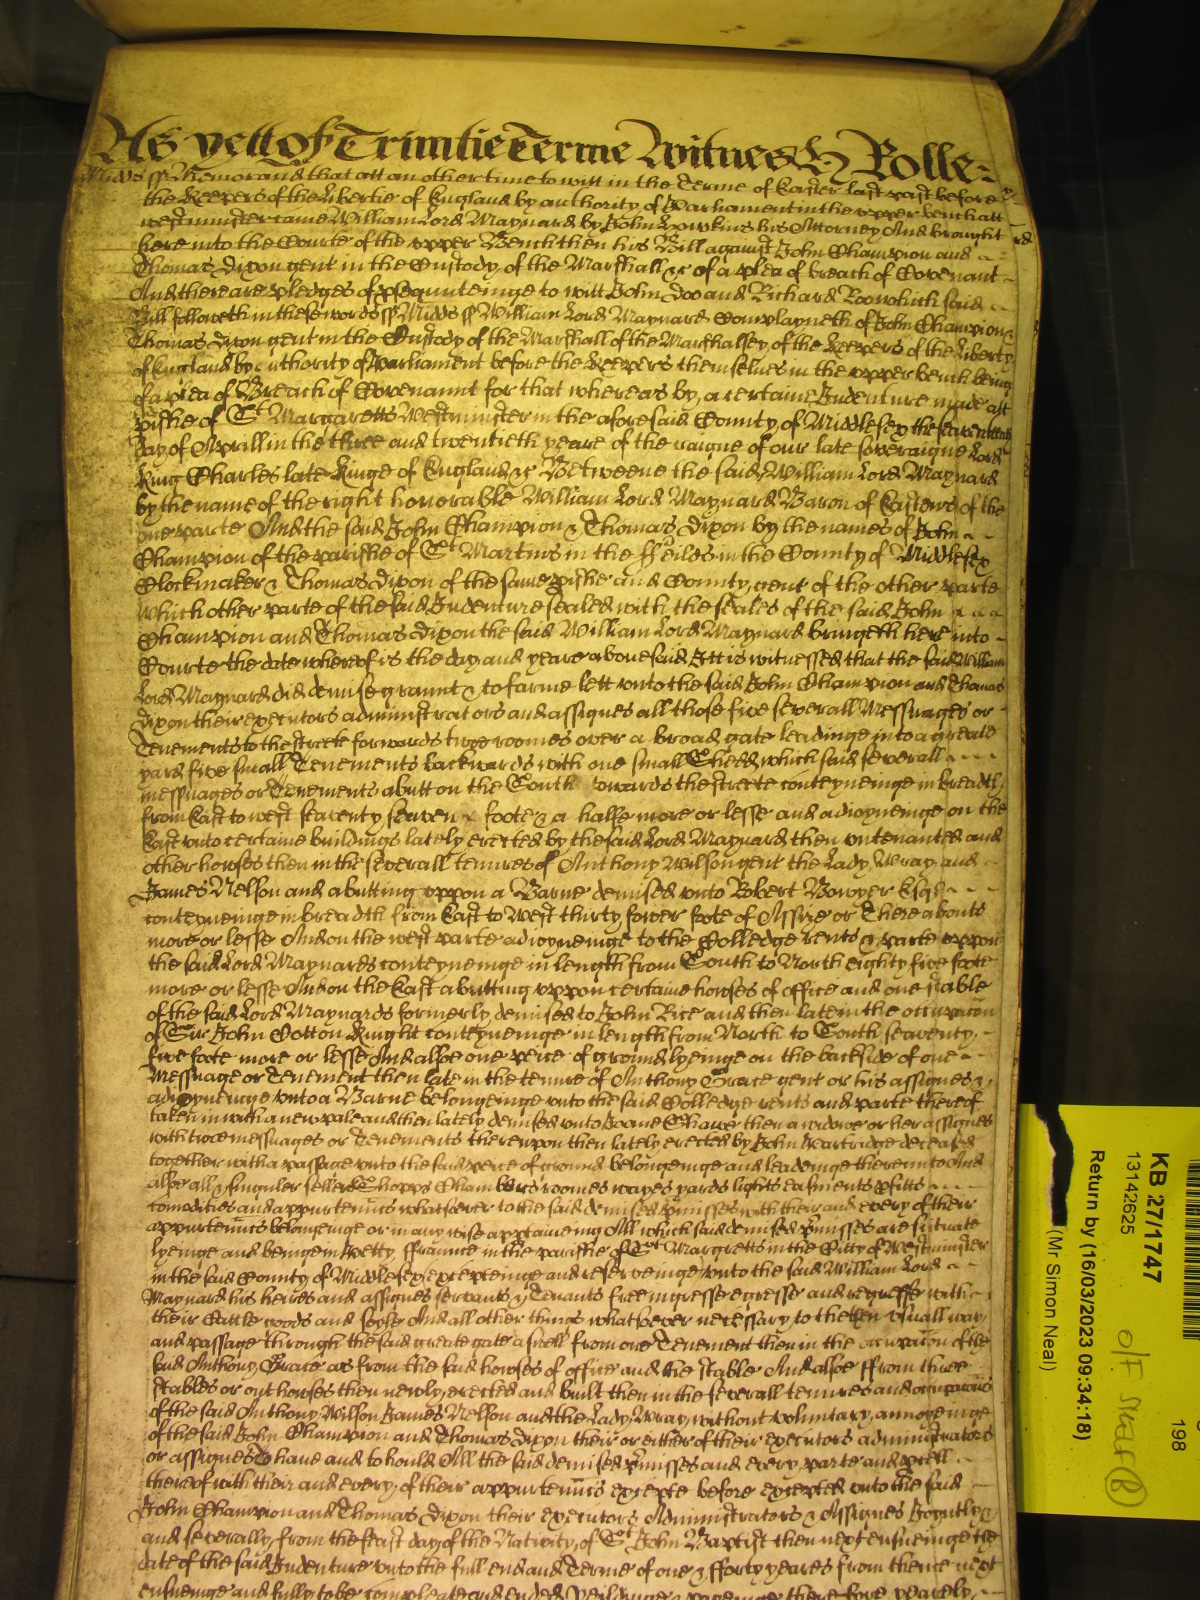 As yett Of Trinitie Terme Witnes H Rolle:
Midds ss Memorand that att an other time to witt in the Terme of Easter last past before
the Keepers of the Libertie of England by authority of Parliament in the upper bench att
westminster came William Lord Maynard by John Howkins his Attorney And brought
here into the Courte of the upper Bench then his Bill against John Champion and
Thomas Dixon gent in the Custody of the Marshall &c of a plea of breach of Covenant
And there are pledges of psequuteinge to witt John Doo and Richard Roo which said
Bill followeth in these words ss Midds ss William Lord Maynard Complayneth of John Champion &
Thomas Dixon gent in the Custody of the Marshall of the Marshalsey of the Keepers of the Liberty
of England by authority of Parliament before the Keepers themselves in the upper bench being
of a plea of Breach of Covenannt for that whereas by a certaine Indenture made att
pishe of St Margaretts Westminster in the aforesaid County of Middlesex the seaventeenth
day of Aprill in the three and twentieth yeare of the raigne of our late soveraigne Lord
King Charles late Kinge of England &c Betweene the said William Lord Maynard
by the name of the right honorable William Lord Maynard Baron of Eastews of the
one parte And the said John Champion & Thomas Dixon by the names of John
Champion of the parishe of St Martins in the ffeilds in the County of Middlesex
Clockmaker & Thomas Dixon of the same pishe and County gent of the other parte
Which other parte of the said Indenture sealed with the seales of the said John
Champion and Thomas Dixon the said William Lord Maynard bringeth here into
Courte the date whereof is the day and yeare abovesaid Itt is witnessed that the said William
Lord Maynard did demise graunt & to farme lett unto the said John Champion and Thomas
Dixon their executors administrators and assignes all those five severall Messuages or
Tenements to the streete forwards twoe roomes over a broad gate leadinge into a greate
yard five small Tenements backwards with one small Shedd which said severall
messuages or Tenements abutt on the South towards the streete conteyneinge in breadth
from East to west seaventy seaven foote & a halfe more or lesse and adioyneinge on the
East unto certaine buildings lately erected by the said Lord Maynard then untenanted and
other howses then in the severall tenures of Anthony Wilson gent the Lady Wray and
James Nelson and abutting uppon a Barne demised unto Robert Bowyer Esqr
conteyneinge in breadth from East to West thirty fower foote of Assize or thereabouts
more or lesse And on the west parte adioyneinge to the Colledge rents & parte uppon
the said Lord Maynards conteyneinge in length from South to North eighty five foote
more or lesse And on the East abutting uppon certaine howses of office and one stable
of the said Lord Maynards formerly demised to John Rice and then late in the occupacon
of Sir John Cotton Knight conteyneinge in length from North to South seaventy
five foote more or lesse And alsoe one peice of ground lyeinge on the backside of one
Messuage or Tenement then late in the tenure of Anthony Grace gent or his assignes &
adioyneinge unto a Barne belongeinge unto the said Colledge rents and parte thereof
taken in with a new pale and then lately demised unto Joane Shawe then a widowe or her assignes
with twoe messuages or Tenements thereuppon then lately erected by John Partridge deceased
together with a passage unto the said peice of ground belongeinge and leadeinge thereinto And
alsoe all & singuler sellers Shopps Chambers roomes wayes yards lights easments pfitts
comodities and appurtenncs whatsoever to the said demised pmisses with their and every of their
appurtenncs belongeinge or in any wise apptaineing All which said demised pmisses are situate
lyeinge and beinge in Petty ffraunce in the parishe of St Margretts in the Citty of Westminster
in the said County of Middlesex excepteinge and reserveinge unto the said William Lord
Maynard his heires and assignes servants & Tenants free ingresse egresse and regresse with
their Cattle woods and soyle And all other things whatsoever necessary to the then usuall way
and passage through the said greate gate aswell from one Tenement then in the occupacon of the
said Anthony Grace as from the said howses of office and the stable And alsoe ffrom three
stables or outhowses then newly erected and built then in the severall tenures and occupacons
of the said Anthony Wilson James Nelson and the Lady Wray without voluntary annoyeinge
of the said John Champion and Thomas Dixon their or either of their executors administrators
or assignes To have and to hould All the said demised pmisses and every parte and pcell
thereof with their and every of their appurtenncs excepte before excepted unto the said
John Champion and Thomas Dixon their executors Administrators & Assignes Joyntly
and severally from the feast day of the Nativity of St John Baptist then next ensueinge the
date of the said Indenture unto the full end and Terme of one & fforty yeares from thence next
ensueinge and fully to be compleate and ended Yeildinge & payeinge therefore yearely
KB 27/1747
13142625
Return by (16/03/2023 09:34:18)
(Mr Simon Neal)
O/F Staff (B)
198